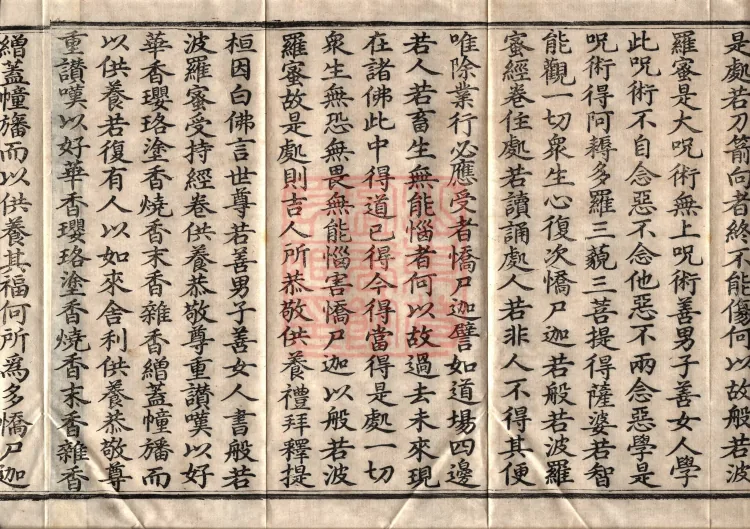 是處若刀箭向者終不能傷何以故般若波
羅蜜是大呪術無上呪術善男子善女人學
此呪術不自念惡不念他惡不兩念惡學是
呪術得阿耨多羅三藐三菩提得薩婆若智
能觀一切衆生心復次憍尸迦若般若波羅
蜜經卷住處若讀誦處人若非人不得其便
唯除業行必應受者憍尸迦譬如道場四邊
若人若畜生無能惱者何以故過去未來現
在諸佛此中得道已得今得當得是處一切
衆生無恐無畏無能惱害憍尸迦以般若波
羅蜜故是處則吉人所恭敬供養禮拜釋提
桓因白佛言世尊若善男子善女人書般若
波羅蜜受持經卷供養恭敬尊重讃嘆以好
華香瓔珞塗香燒香末香雜香繒蓋幢旛而
以供養若復有人以如來舍利供養恭敬尊
重讃嘆以好華香瓔珞塗香燒香末香雜香
繒蓋幢旛而以供養其福何所爲多憍尸迦